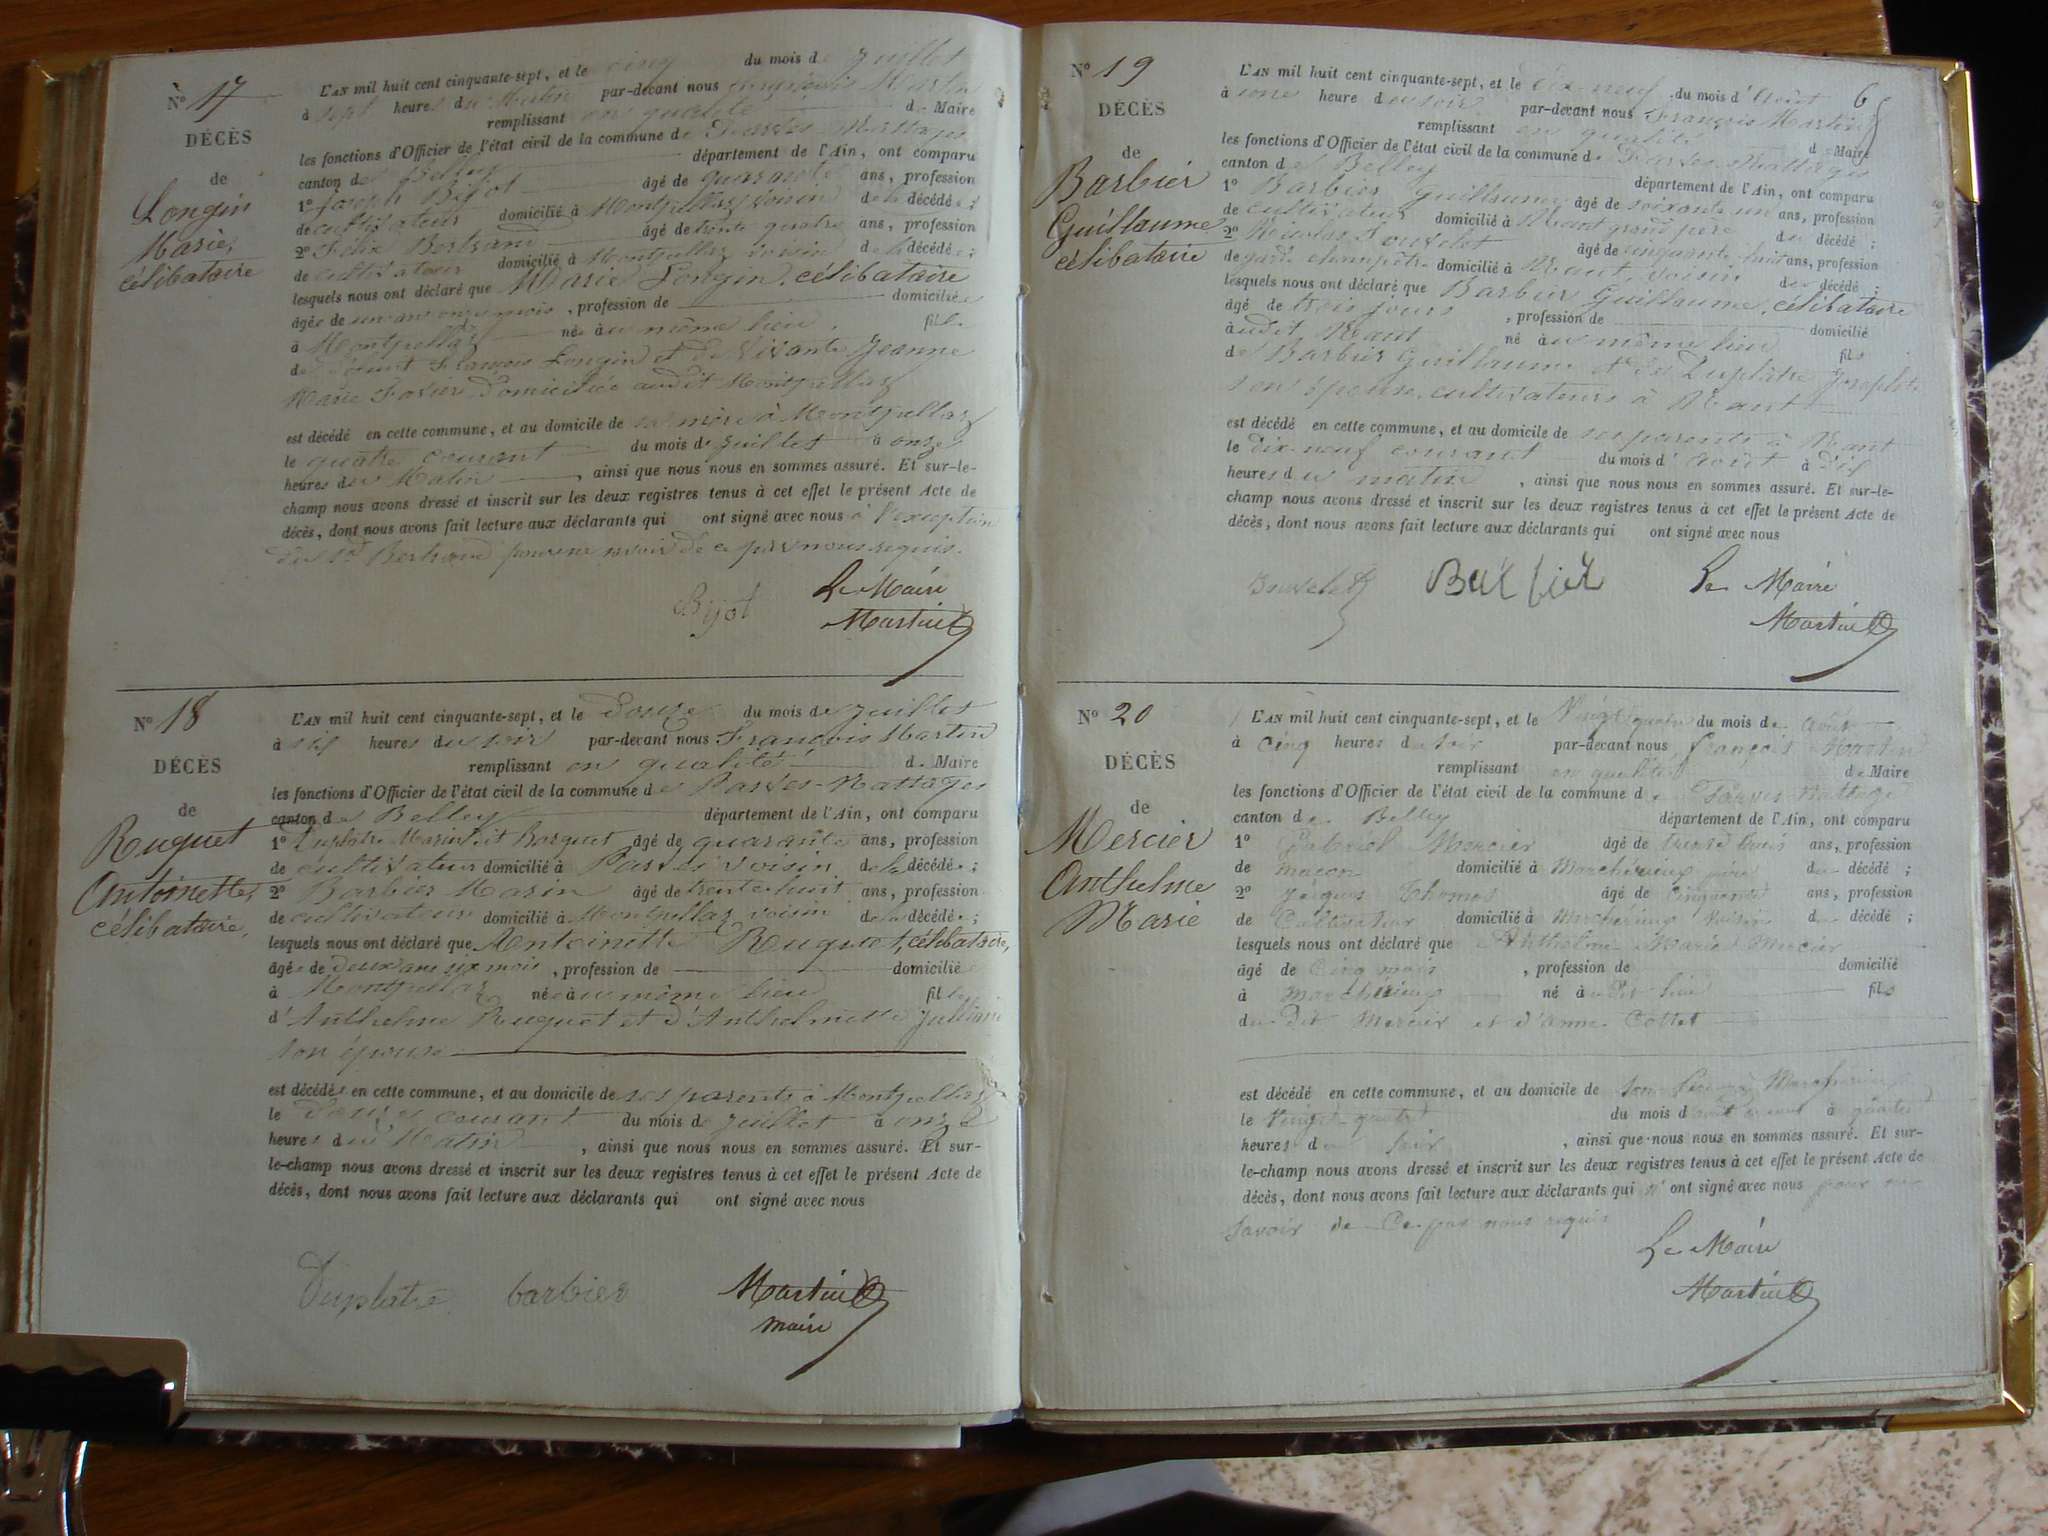 N° 17
DÉCÈS
de
Longin
Marie,
célibataire
L'AN mil huit cent cinquante-sept, et le cinq du mois de Juillet
à sept heures du Matin par-devant nous François Martin
remplissant en qualité de Maire
les fonctions d'Officier de l'état civil de la commune de Parves-Nattages
canton de Belley département de l'Ain, ont comparu
1° Joseph Bijot âgé de quarante ans, profession
de cultivateur domicilié à Montpellaz voisin de la décédée;
2° Félix Bertrand âgé de trente quatre ans, profession
de cultivateur domicilié à Montpellaz voisin de la décédée;
lesquels nous ont déclaré que Marie Longin, célibataire
âgée de un an onze mois, profession de domiciliée
à Montpellaz née au même lieu, fille
de défunt François Longin et de vivante Jeanne
Marie Favier domiciliée audit Montpellaz
est décédé en cette commune, et au domicile de sa mère à Montpellaz
le quatre courant du mois de Juillet à onze
heures du Matin, ainsi que nous nous en sommes assuré. Et sur-le-
champ nous avons dressé et inscrit sur les deux registres tenus à cet effet le présent Acte de
décès, dont nous avons fait lecture aux déclarants qui ont signé avec nous à l'exception
du Sr Bertrand pour ne savoir de ce par nous requis.
Bijot Le Maire
Martin
N° 18
DÉCÈS
de
Ruguet
Antoinette,
célibataire,
L'AN mil huit cent cinquante-sept, et le douze du mois de Juillet
à six heures du soir par-devant nous François Martin
remplissant en qualité de Maire
les fonctions d'Officier de l'état civil de la commune de Parves-Nattages
canton de Belley département de l'Ain, ont comparu
1° Duplatre Marin dit âgé de quarante ans, profession
de cultivateur domicilié à Parves voisin de la décédée;
2° Barbier Marin âgé de trente huit ans, profession
de cultivateur domicilié à Montpellaz voisin de la décédée;
lesquels nous ont déclaré que Antoinette Ruguet, célibataire,
âgée de deux ans six mois, profession de domiciliée
à Montpellaz née au même lieu fille
d'Anthelme Ruguet et d'Anthelmette
son épouse
est décédée en cette commune, et au domicile de ses parents à Montpellaz
le douze courant du mois de Juillet à onze
heures du Matin, ainsi que nous nous en sommes assuré. Et sur-
le-champ nous avons dressé et inscrit sur les deux registres tenus à cet effet le présent Acte de
décès, dont nous avons fait lecture aux déclarants qui ont signé avec nous
Duplatre barbier Martin
maire
6
N° 19
DÉCÈS
de
Barbier
Guillaume
célibataire
L'AN mil huit cent cinquante-sept, et le dix-neuf du mois d'Août
à une heure du soir par-devant nous François Martin
remplissant en qualité de Maire
les fonctions d'Officier de l'état civil de la commune de Parves-Nattages
canton de Belley département de l'Ain, ont comparu
1° Barbier Guillaume âgé de soixante un ans, profession
de cultivateur domicilié à Nant grand père du décédé;
2° Nicolas âgé de cinquante huit ans, profession
de garde champêtre domicilié à Nant, voisin du décédé;
lesquels nous ont déclaré que Barbier Guillaume, célibataire
âgé de trois jours, profession de domicilié
audit Nant né au même lieu fils
de Barbier Guillaume et de Duplatre Josephte
son épouse, cultivateurs à Nant
est décédé en cette commune, et au domicile de ses parents à Nant
le dix-neuf courant du mois d'Août à dix
heures du matin, ainsi que nous nous en sommes assuré. Et sur-le-
champ nous avons dressé et inscrit sur les deux registres tenus à cet effet le présent Acte de
décès, dont nous avons fait lecture aux déclarants qui ont signé avec nous
Barbier Le Maire
Martin
N° 20
DÉCÈS
de
Mercier
Anthelme
Marie
L'AN mil huit cent cinquante-sept, et le Vingt quatre du mois de Août
à Cinq heures du soir par-devant nous françois Martin
remplissant en qualité de Maire
les fonctions d'Officier de l'état civil de la commune de Parves-Nattage
canton de Belley département de l'Ain, ont comparu
1° Gabriel Mercier âgé de trente trois ans, profession
de maçon domicilié à Marchérieux père du décédé;
2° Jacques Thomas âgé de Cinquante ans, profession
de Cultivateur domicilié à Marchérieux voisin du décédé;
lesquels nous ont déclaré que Anthelme Marie Mercier
âgé de Cinq mois, profession de domicilié
à Marchérieux né au dit lieu fils
du Dit Mercier et d'Anne Cottet
est décédé en cette commune, et au domicile de son Père à Marchérieux
le Vingt quatre du mois d'août courant à quatre
heures du soir, ainsi que nous nous en sommes assuré. Et sur-
le-champ nous avons dressé et inscrit sur les deux registres tenus à cet effet le présent Acte de
décès, dont nous avons fait lecture aux déclarants qui n'ont signé avec nous pour ne
Savoir de Ce par nous requis
Le Maire
Martin